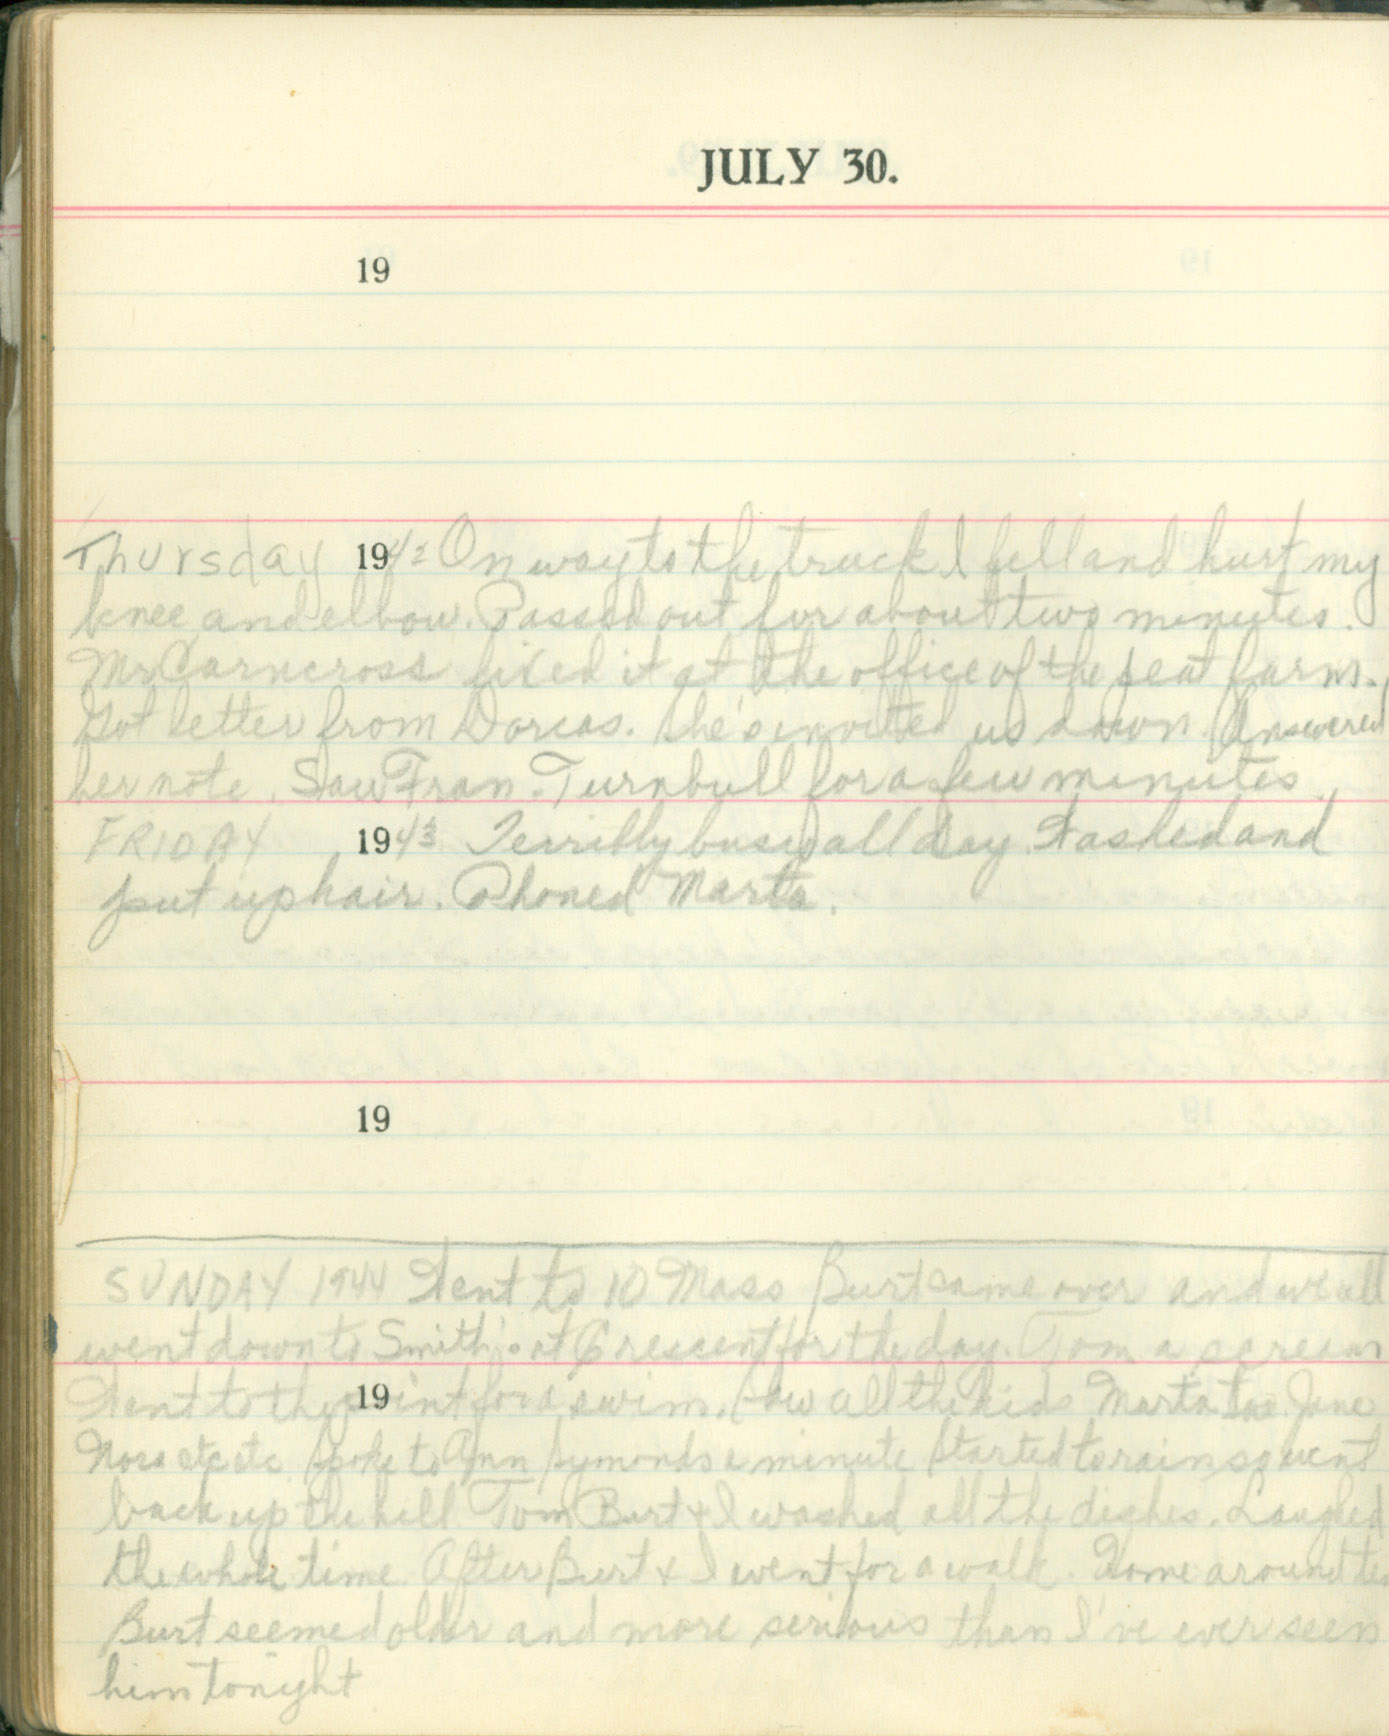 JULY 30.
19
Thursday 1942 On way to the truck I fell and hurt my
knee and elbow. Passed out for about two minutes.
Mr Carncross fixed it at the office of the peat farm.
Got letter from Dorcas. She's invited us down. Answered
her note. Saw Fran. Turnbull for a few minutes.
FRIDAY 1943 Terribly busy all day. Washed and
put up hair. Phoned Marta.
19
SUNDAY 1944 Went to 10 Mass Burt came over and we all
went down to Smith's at Crescent for the day. Tom a scream
19
Went to the point for a swim. Saw all the kids Marta Jane
Nora etc etc Spoke to Ann Symonds a minute Started to rain so went
back up the hill Tom Burt + I washed all the dishes. Laughed
the whole time. After Burt + I went for a walk. Home around ten
Burt seemed older and more serious than I've ever seen
him tonight